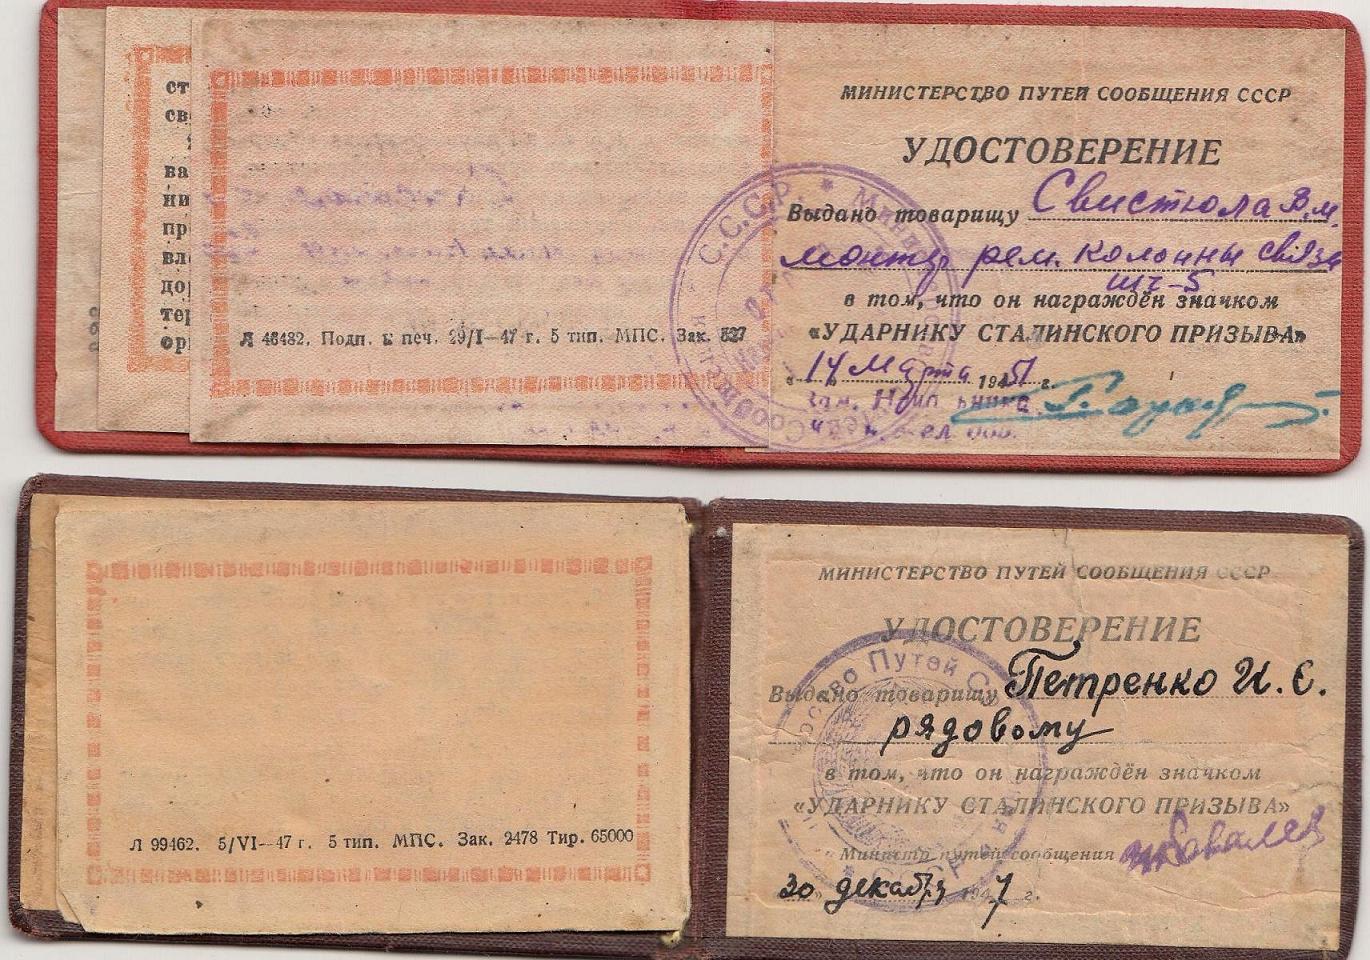 ст
св
ва
ни
пр
вл
до
тер
ор
Л 46482. Подп. к печ. 29/I—47 г. 5 тип. МПС. Зак. 527
МИНИСТЕРСТВО ПУТЕЙ СООБЩЕНИЯ СССР
УДОСТОВЕРЕНИЕ
Выдано товарищу Свистюла В.М.
монтер рем. колонны связи
ШЧ-5
в том, что он награждён значком
«УДАРНИКУ СТАЛИНСКОГО ПРИЗЫВА»
„14" Марта 1951 г.
Зам. Начальника
С.С.С.Р. * Мини
Л 99462. 5/VI—47 г. 5 тип. МПС. Зак. 2478 Тир. 65000
МИНИСТЕРСТВО ПУТЕЙ СООБЩЕНИЯ СССР
УДОСТОВЕРЕНИЕ
Выдано товарищу Петренко И. С.
рядовому
в том, что он награждён значком
«УДАРНИКУ СТАЛИНСКОГО ПРИЗЫВА»
Министр путей сообщения
30 декабря 1947 г.
Путей